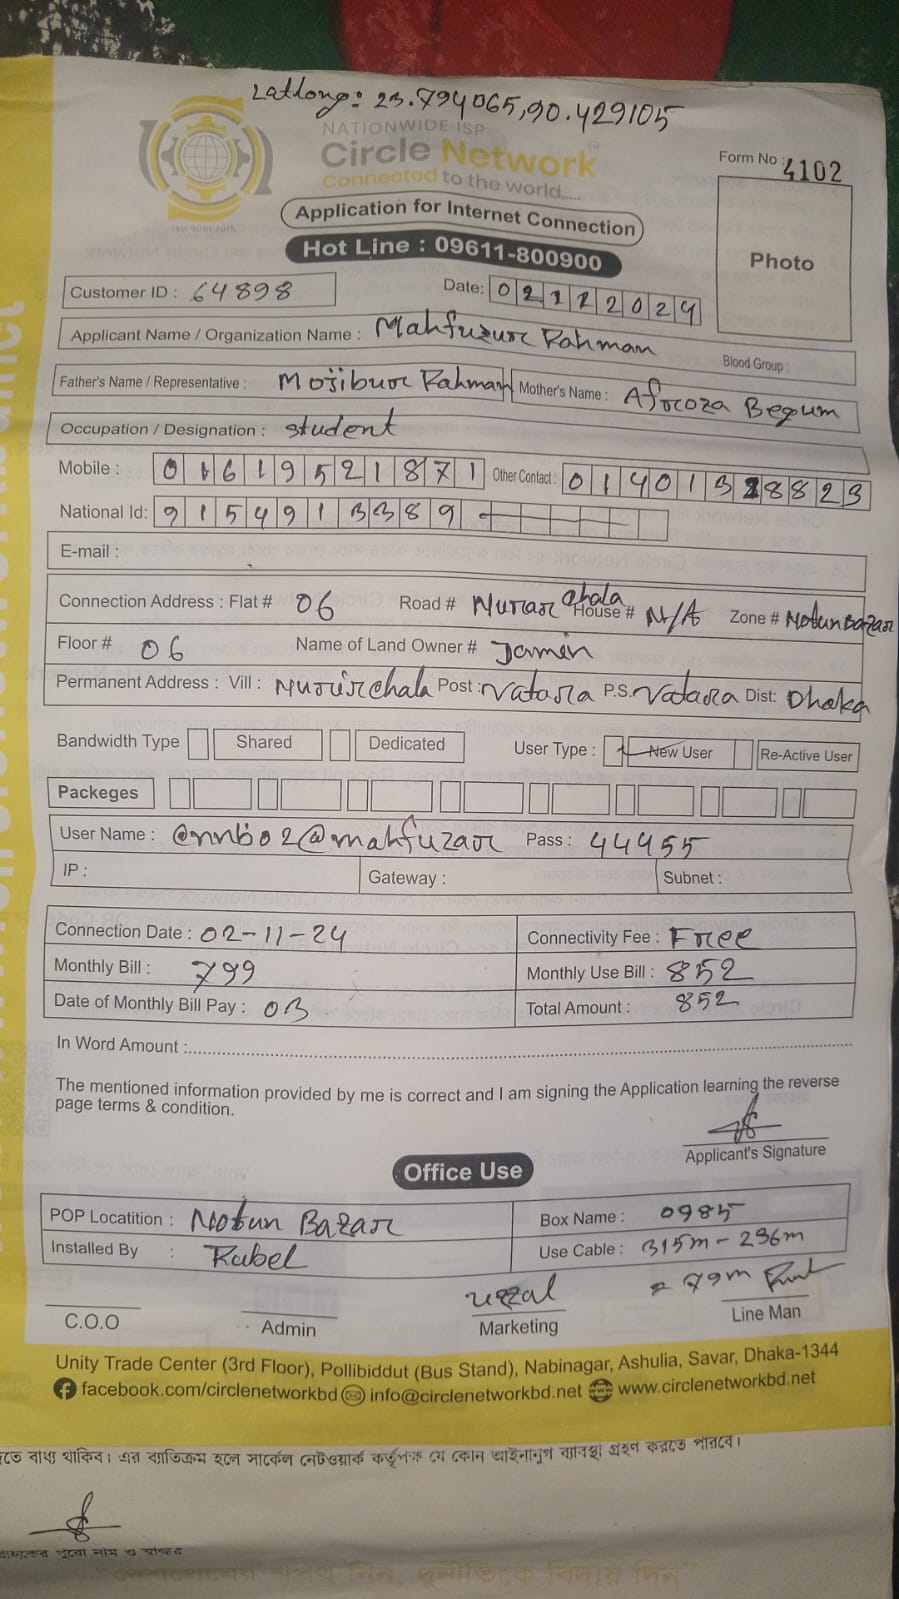 Latlong: 23.794065,90.429105
NATIONWIDE ISP
Circle Network
Connected to the world.....
ISO 9001:2015
Form No : 4102
Application for Internet Connection
Hot Line : 09611-800900
Photo
Customer ID : 64898 Date: 02112024
Applicant Name / Organization Name : Mahfuzur Rahman Blood Group :
Father's Name / Representative : Mojibur Rahman Mother's Name : Afroza Begum
Occupation / Designation : student
Mobile : 01619521871 Other Contact : 01401318823
National Id: 9154913389
E-mail :
Connection Address : Flat # 06 Road # Nurar chala House # N/A Zone # Notun Bazar
Floor # 06 Name of Land Owner # Jamin
Permanent Address : Vill : Nurirchala Post : Vatara P.S. Vatara Dist: Dhaka
Bandwidth Type Shared Dedicated User Type : New User Re-Active User
Packeges
User Name : @nnb02@mahfuzar Pass : 44455
IP : Gateway : Subnet :
Connection Date : 02-11-24 Connectivity Fee : Free
Monthly Bill : 799 Monthly Use Bill : 852
Date of Monthly Bill Pay : 03 Total Amount : 852
In Word Amount :
The mentioned information provided by me is correct and I am signing the Application learning the reverse
page terms & condition.
Applicant's Signature
Office Use
POP Locatition : Notun Bazar Box Name : 0985
Installed By : Rubel Use Cable : 315m - 236m
= 79m
uzzal
C.O.O Admin Marketing Line Man
Unity Trade Center (3rd Floor), Pollibiddut (Bus Stand), Nabinagar, Ashulia, Savar, Dhaka-1344
facebook.com/circlenetworkbd info@circlenetworkbd.net www.circlenetworkbd.net
বাধ্য থাকিব। এর ব্যাতিক্রম হলে সার্কেল নেটওয়ার্ক কর্তৃপক্ষ যে কোন আইনানুগ ব্যাবস্থা গ্রহণ করতে পারবে।